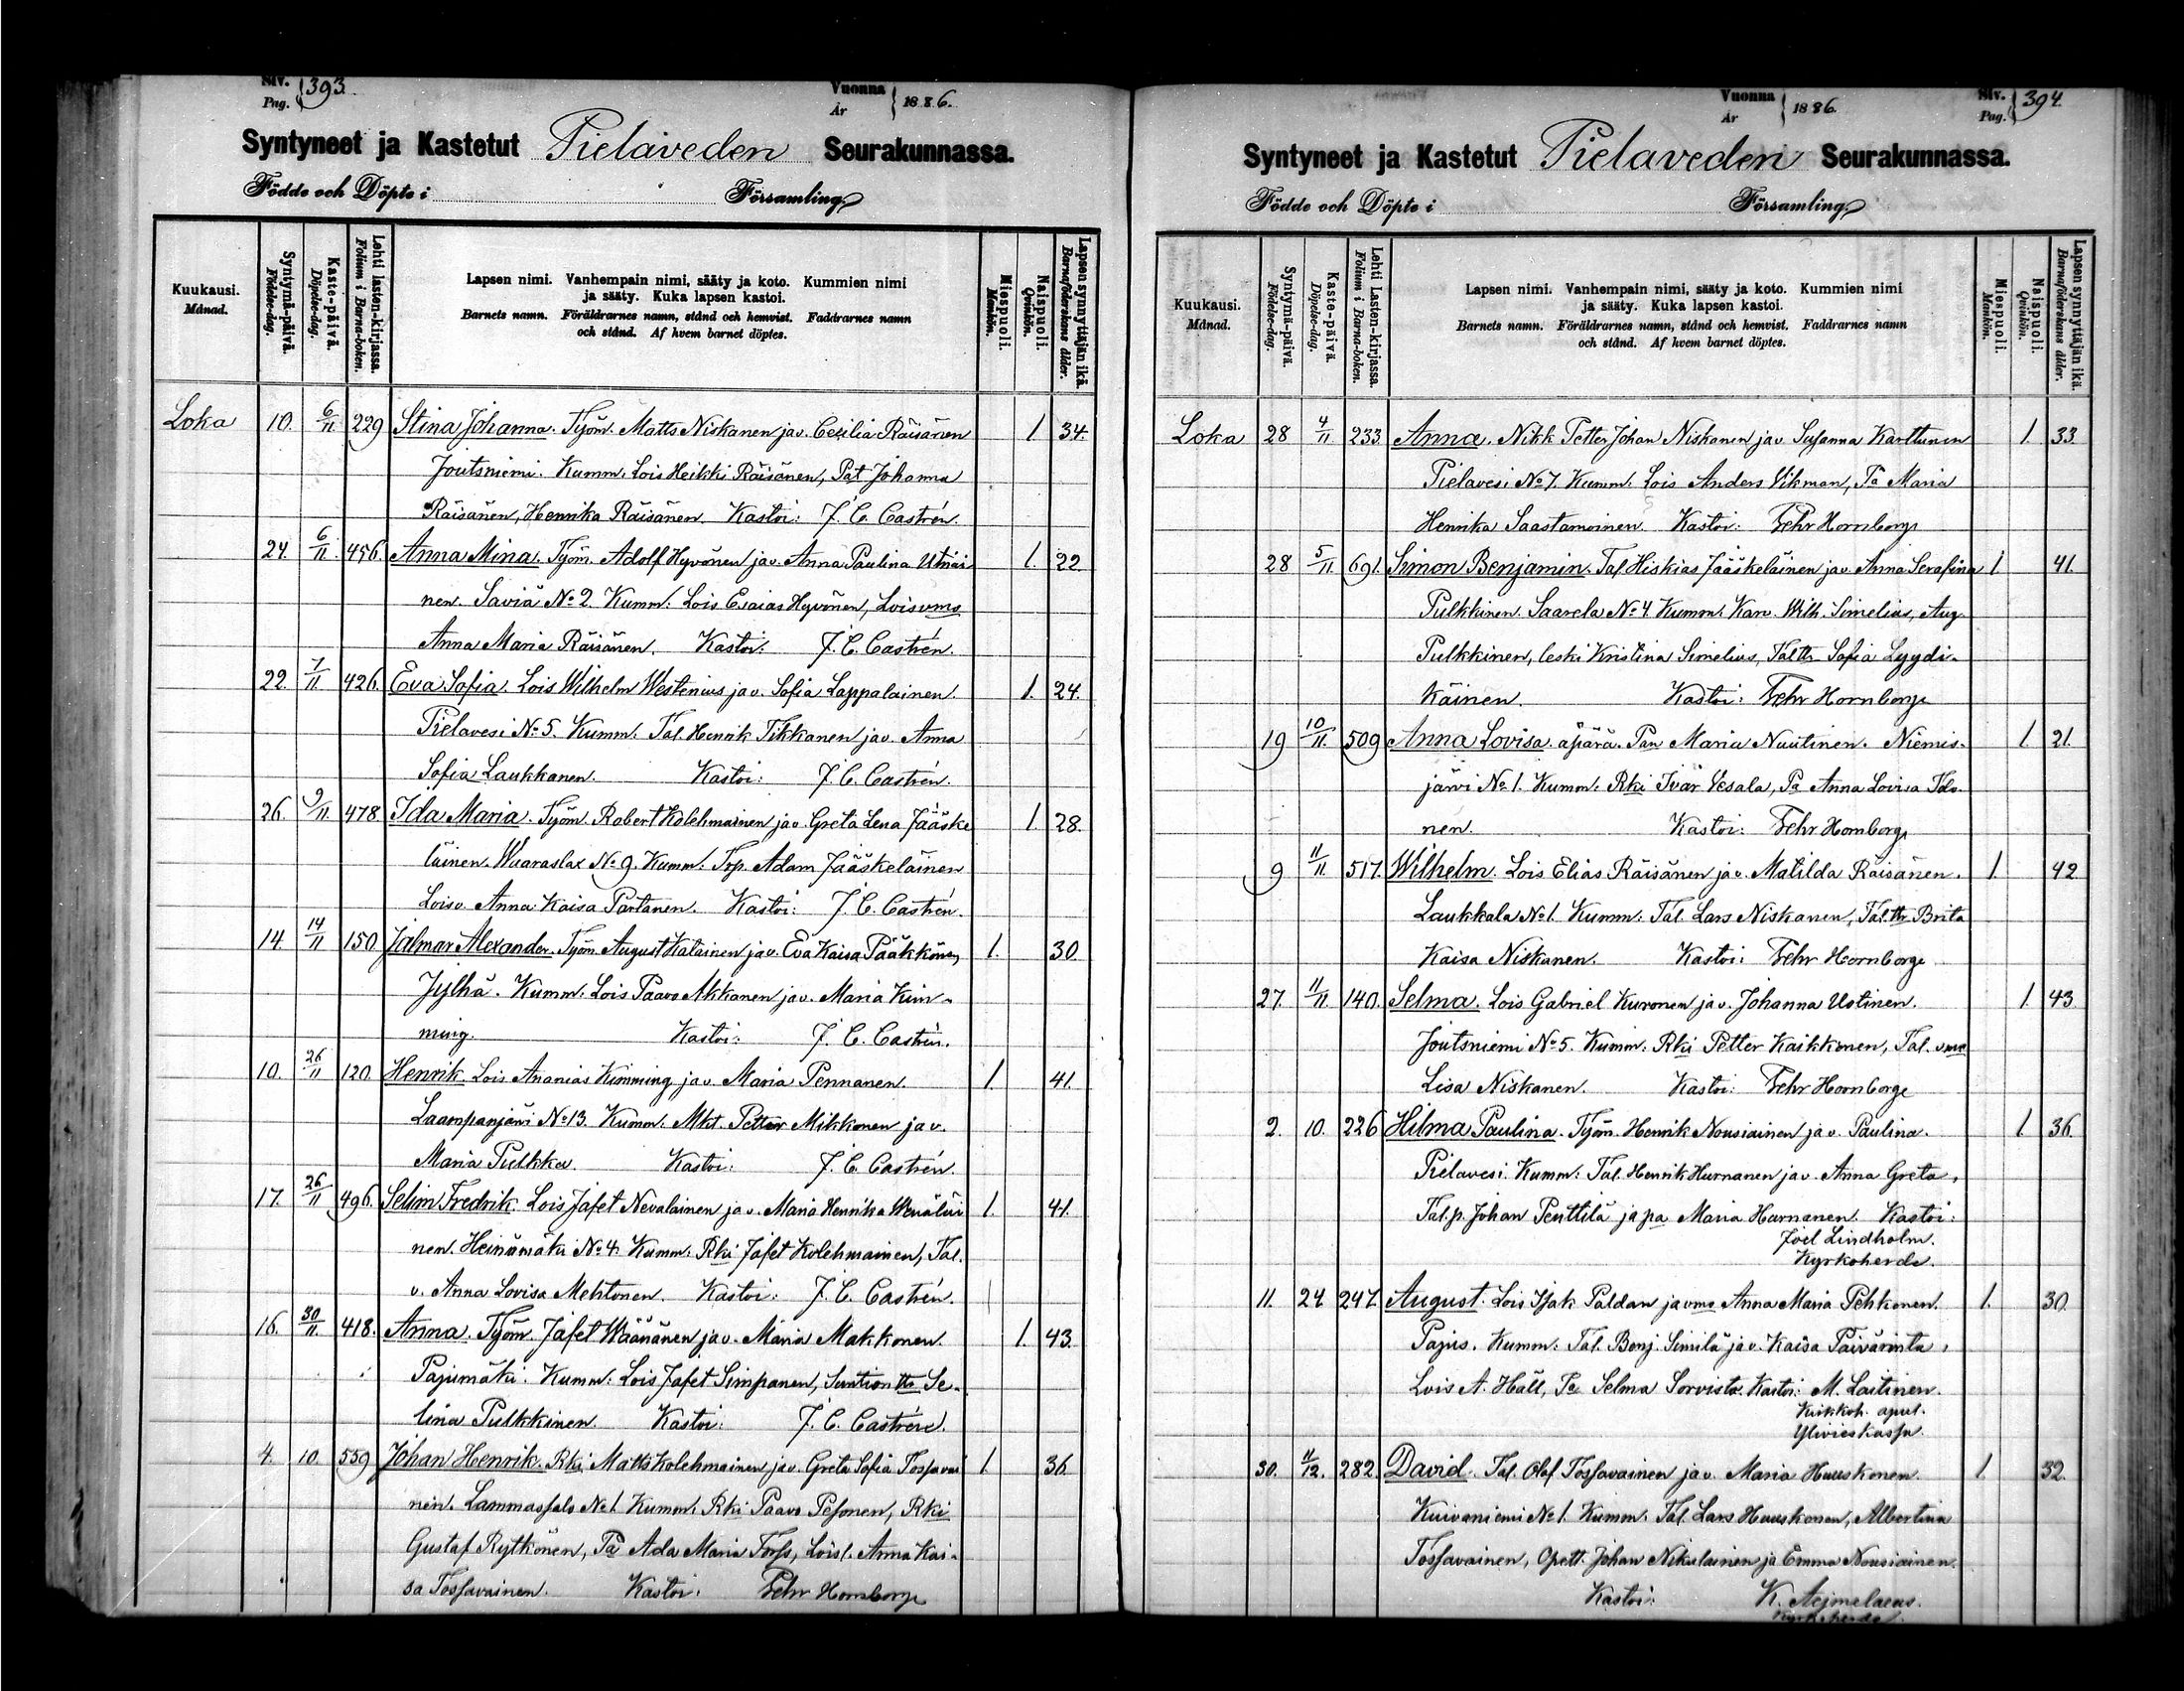 Siv. Pag. 393. Vuonna År 1886.
Syntyneet ja Kastetut Pielaveden Seurakunnassa.
Födde och Döpte i Församling.
Kuukausi. Månad.
Syntymä-päivä. Födelse-dag.
Kaste-päivä. Döpelse-dag.
Lehti lasten-kirjassa. Folium i Barna-boken.
Lapsen nimi. Vanhempain nimi, sääty ja koto. Kummien nimi
ja sääty. Kuka lapsen kastoi.
Barnets namn. Föräldrarnes namn, stånd och hemvist. Faddrarnes namn
och stånd. Af hvem barnet döptes.
Miespuoli. Mankön.
Naispuoli. Qvinkön.
Lapsen synnyttäjän ikä. Barnaföderskans ålder.
Loka 10. 6/11 229 Stina Johanna. Työm. Matts Niskanen ja v. Cecilia Räisänen 1 34.
Joutsniemi. Kumm: Lois Heikki Räisänen, Pat Johanna
Räisänen, Henrika Räisänen. Kastoi: J. C. Castrén.
24. 6/11 456. Anna Mina. Työm. Adolf Hyvönen ja v. Anna Paulina Utriai 1. 22
nen. Saviä No 2. Kumm: Lois Esaias Hyvönen, Lois vmo
Anna Maria Räisänen. Kastoi: J. C. Castrén.
22. 7/11. 426. Eva Sofia. Lois Wilhelm Westenius ja v. Sofia Lappalainen. 1. 24.
Pielavesi No 5. Kumm: Tal. Henrik Tikkanen ja v. Anna
Sofia Laukkanen. Kastoi: J. C. Castrén.
26. 9/11. 478. Ida Maria. Työm. Robert Kolehmainen ja v. Greta Lena Jääske 1. 28.
läinen. Waaraslax No 9. Kumm: Trp. Adam Jääskeläinen
Lois v. Anna Kaisa Partanen. Kastoi: J. C. Castrén.
14. 14/11 150. Jalmar Alexander. Työm. August Katainen ja v. Eva Kaisa Pääkkönen 1. 30.
Jylhä. Kumm: Lois Paavo Akkanen ja v. Maria Kim-
ming. Kastoi: J. C. Castrén.
10. 26/11 120. Henrik. Lois Ananias Kimming ja v. Maria Pennanen. 1. 41.
Laampanjärvi No 13. Kumm. Mkt. Petter Mikkonen ja v.
Maria Pulkka. Kastoi: J. C. Castrén.
17. 26/11 496. Selim Fredrik. Lois Jafet Nevalainen ja v. Maria Henrika Wenäläi 1. 41.
nen. Heinämäki No 4. Kumm: Rki Jafet Kolehmainen, Tal.
v. Anna Lovisa Mehtonen. Kastoi: J. C. Castrén.
16. 30/11. 418. Anna. Työm. Jafet Wäänänen ja v. Maria Makkonen. 1. 43.
Pajumäki. Kumm: Lois Jafet Simpanen, Suntion tr Se-
lina Pulkkinen. Kastoi: J. C. Castrén.
4. 10. 559 Johan Henrik. Rki Matts Kolehmainen ja v. Greta Sofia Tossavai 1. 36.
nen. Lammassalo No 1. Kumm: Rki Paavo Pesonen, Rki
Gustaf Rytkönen, Pa Ada Maria Torss, Lois l. Anna Kai-
sa Tossavainen. Kastoi: Fehr Hornborg
Vuonna År 1886. Siv. Pag. 394.
Syntyneet ja Kastetut Pielaveden Seurakunnassa.
Födde och Döpte i Församling.
Kuukausi. Månad.
Syntymä-päivä. Födelse-dag.
Kaste-päivä. Döpelse-dag.
Lehti Lasten-kirjassa. Folium i Barna-boken.
Lapsen nimi. Vanhempain nimi, sääty ja koto. Kummien nimi
ja sääty. Kuka lapsen kastoi.
Barnets namn. Föräldrarnes namn, stånd och hemvist. Faddrarnes namn
och stånd. Af hvem barnet döptes.
Miespuoli. Mankön.
Naispuoli. Qvinkön.
Lapsen synnyttäjän ikä. Barnaföderskans ålder.
Loka 28 4/11 233. Anna. Nikk. Petter Johan Niskanen ja v. Susanna Karttunen 1. 33
Pielavesi No 7. Kumm: Lois Anders Vikman, Pa Maria
Henrika Saastamoinen. Kastoi: Fehr Hornborg
28 5/11 691. Simon Benjamin. Tal. Hiskias Jääskeläinen ja v. Anna Serafina 1 41.
Pulkkinen. Saarela No 4. Kumm: Kanv. Wilh. Simelius, Aug.
Pulkkinen, leski Kristina Simelius, Tal tr Sofia Lyydi-
käinen. Kastoi: Fehr Hornborg
19 10/11. 509 Anna Lovisa. äpärä. Pan Maria Nuutinen. Niemis- 1. 21.
järvi No 1. Kumm: Rki Ivar Vesala, Pa Anna Lovisa Ido-
nen. Kastoi: Fehr Hornborg
9 11/11 517. Wilhelm. Lois Elias Räisänen ja v. Matilda Räisänen. 1. 42
Laukkala No 1. Kumm: Tal. Lars Niskanen, Tal. tr Brita
Kaisa Niskanen. Kastoi: Fehr Hornborg
27. 11/11. 140. Selma. Lois Gabriel Kuronen ja v. Johanna Ustinen. 1. 43
Joutsniemi No 5. Kumm: Rki Petter Kaikkonen, Tal. vmo
Lisa Niskanen. Kastoi: Fehr Hornborg
2. 10. 226 Hilma Paulina. Työm. Henrik Nousiainen ja v. Paulina. 1. 36.
Pielavesi. Kumm: Tal. Henrik Hurnanen ja v. Anna Greta,
Tal. p. Johan Penttilä ja pa Maria Hurnanen. Kastoi:
Joel Lindholm.
Kyrkoherde.
11. 24 247. August. Lois Isak Paldan ja vmo Anna Maria Pehkonen. 1. 30.
Pajus. Kumm: Tal. Benj. Similä ja v. Kaisa Päivärinta,
Lois A. Häll, Pa Selma Sorvisto. Kastoi: M. Laitinen.
Kirkkoh. apul.
Ylivieskassa.
30. 11/12. 282. David. Tal. Olof Tossavainen ja v. Maria Huuskonen. 1. 32.
Kuivaniemi No 1. Kumm: Tal. Lars Huuskonen, Albertina
Tossavainen, Opett. Johan Nikulainen ja Emma Nousiainen.
Kastoi: K. Aejmelaeus.
Kyrkoherde.